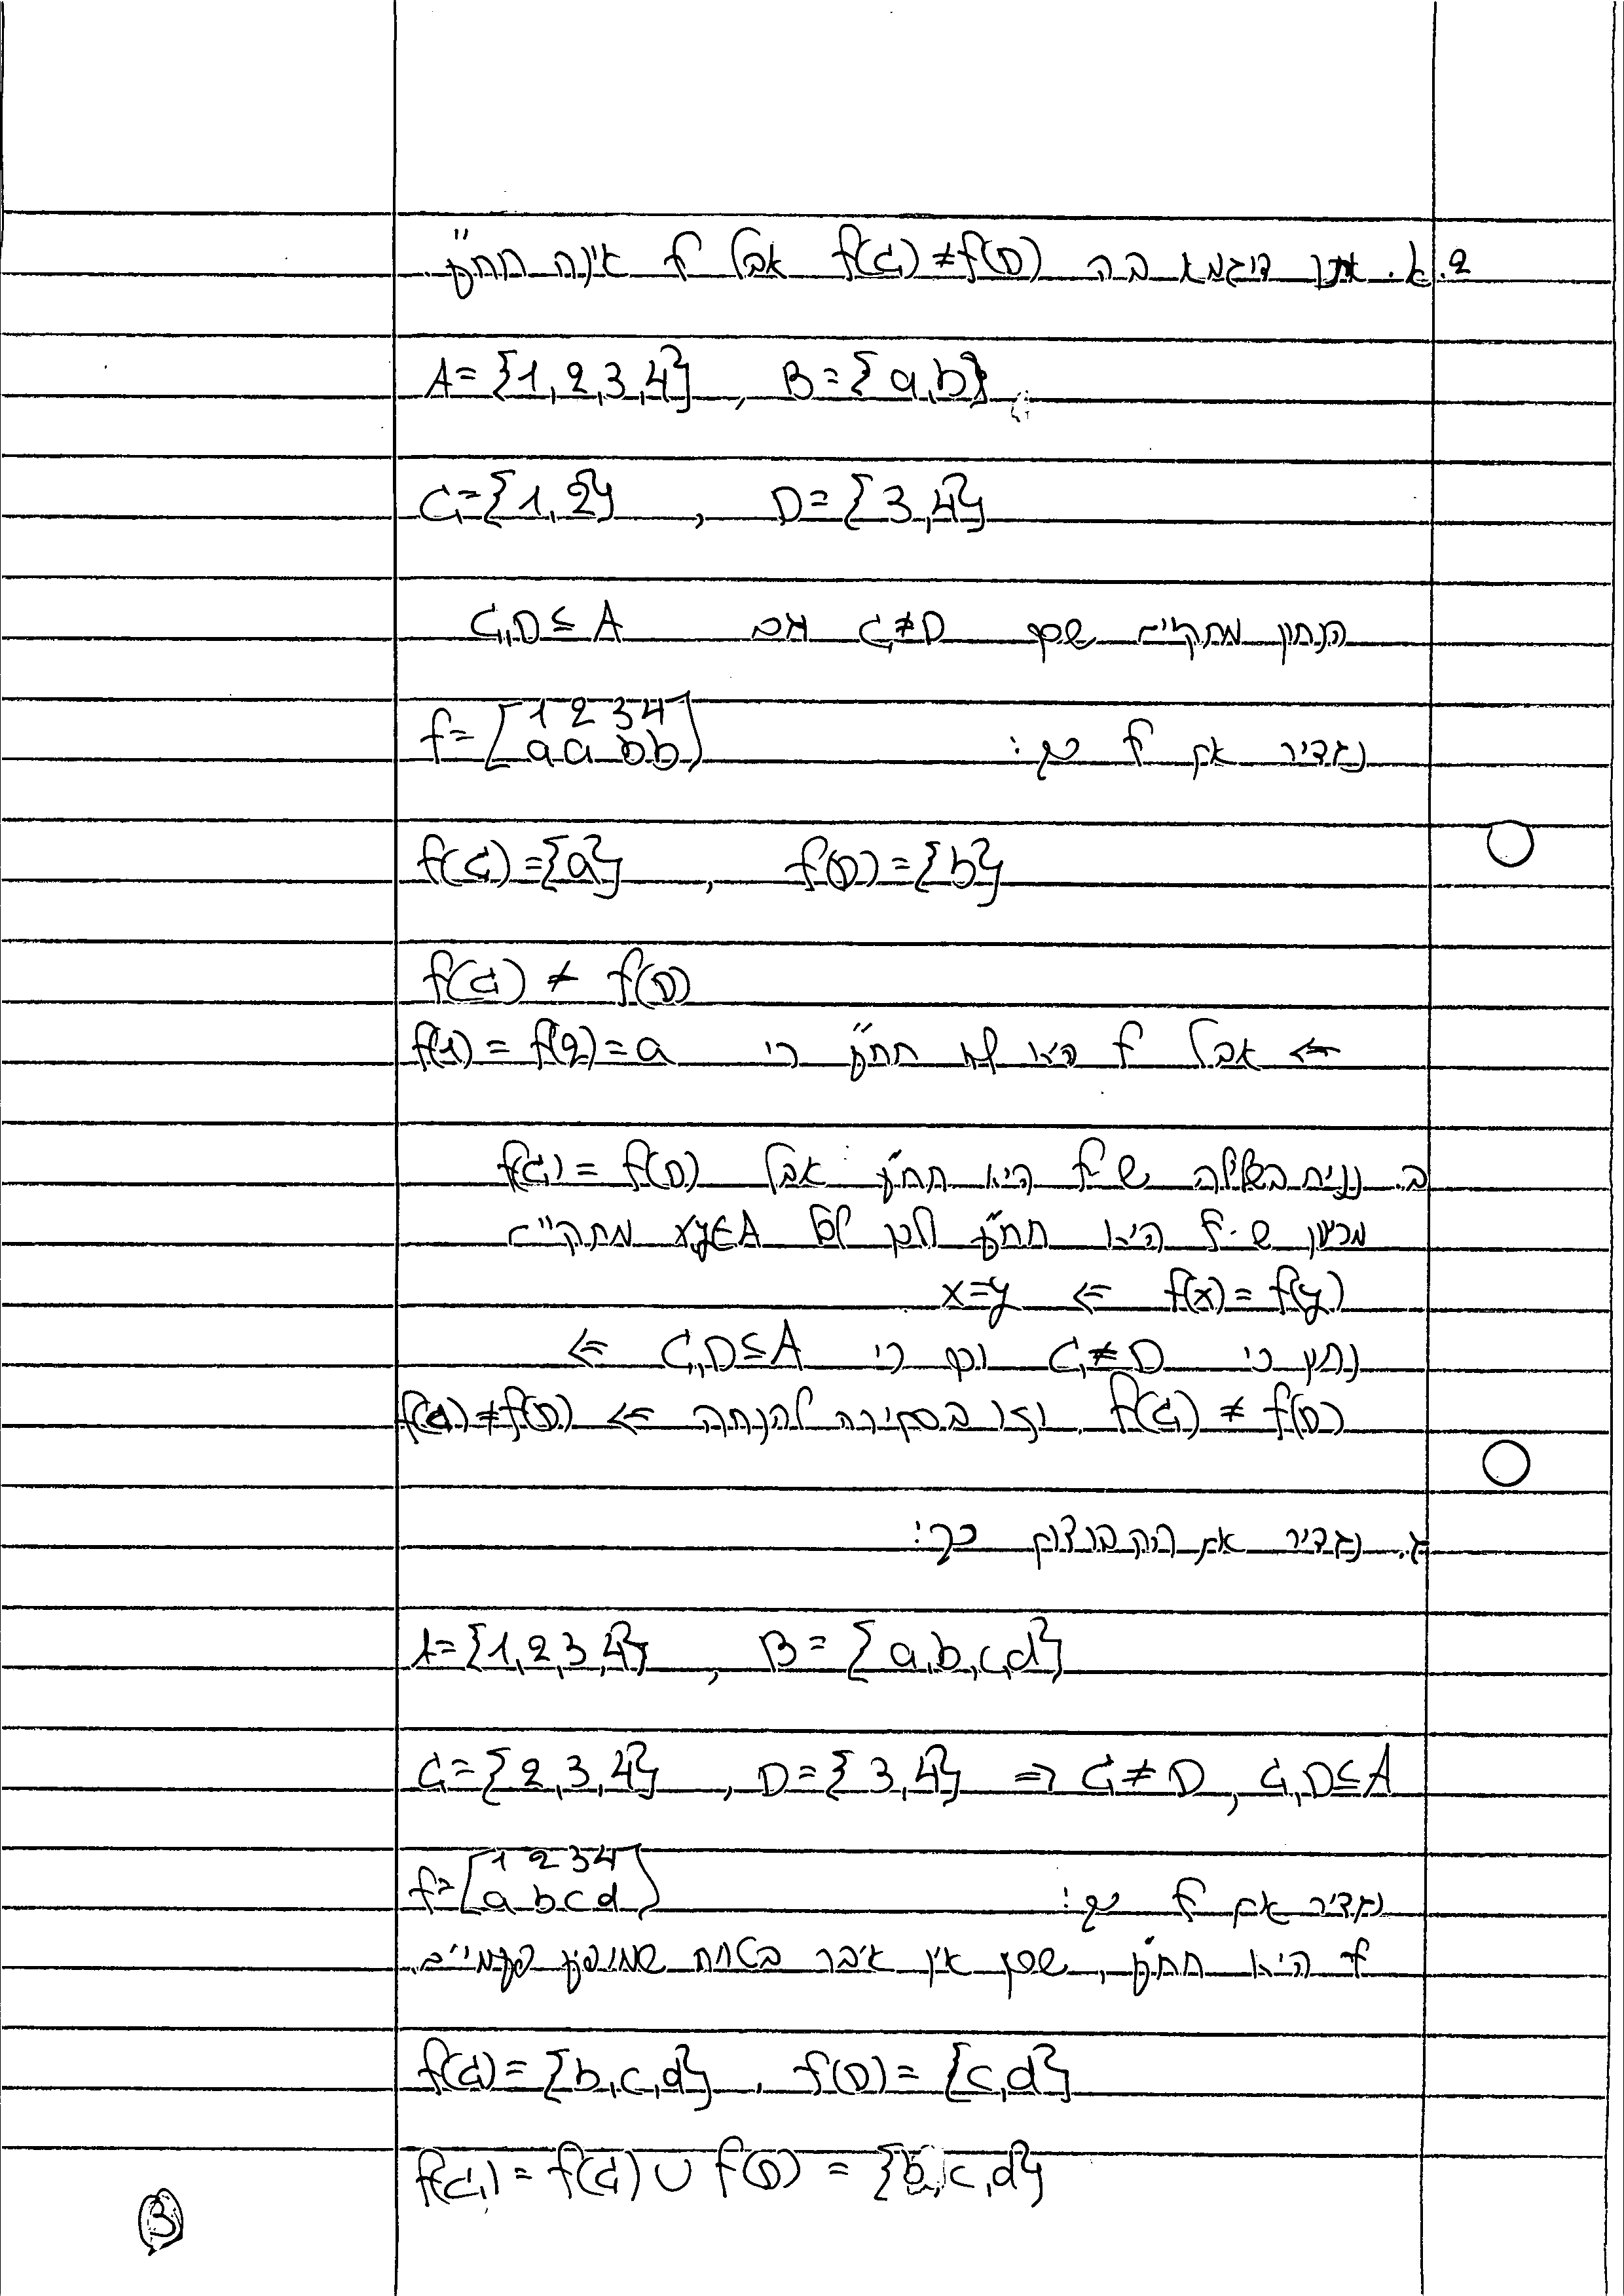 2. א. אתן דוגמא בה f(C) ≠ f(D) אבל f אינה חח"ע.
A = {1,2,3,4} , B = {a,b}
C = {1,2} , D = {3,4}
הנתון מתקיים שכן C ≠ D וגם C,D ⊆ A
נגדיר את f כך: f = [1 2 3 4 / a a b b]
f(C) = {a} , f(D) = {b}
f(C) ≠ f(D)
⇐ אבל f היא לא חח"ע כי f(1) = f(2) = a
ב. נניח בשלילה ש f היא חח"ע אבל f(C) = f(D)
מכיוון ש-f היא חח"ע לכן לכל x,y∈A מתקיים
f(x) = f(y) ⇐ x=y
נתון כי C ≠ D וכן כי C,D ⊆ A ⇐
f(C) ≠ f(D) וזו בסתירה להנחה ⇐ f(C) ≠ f(D)
ג. נגדיר את הקבוצות כך:
A = {1,2,3,4} , B = {a,b,c,d}
C = {2,3,4} , D = {3,4} ⇒ C ≠ D , C,D ⊆ A
נגדיר את f כך: f = [1 2 3 4 / a b c d]
f היא חח"ע, שכן אין איבר בטווח שמופיע פעמיים.
f(C) = {b,c,d} , f(D) = {c,d}
f(C) = f(C) ∪ f(D) = {b,c,d}
3